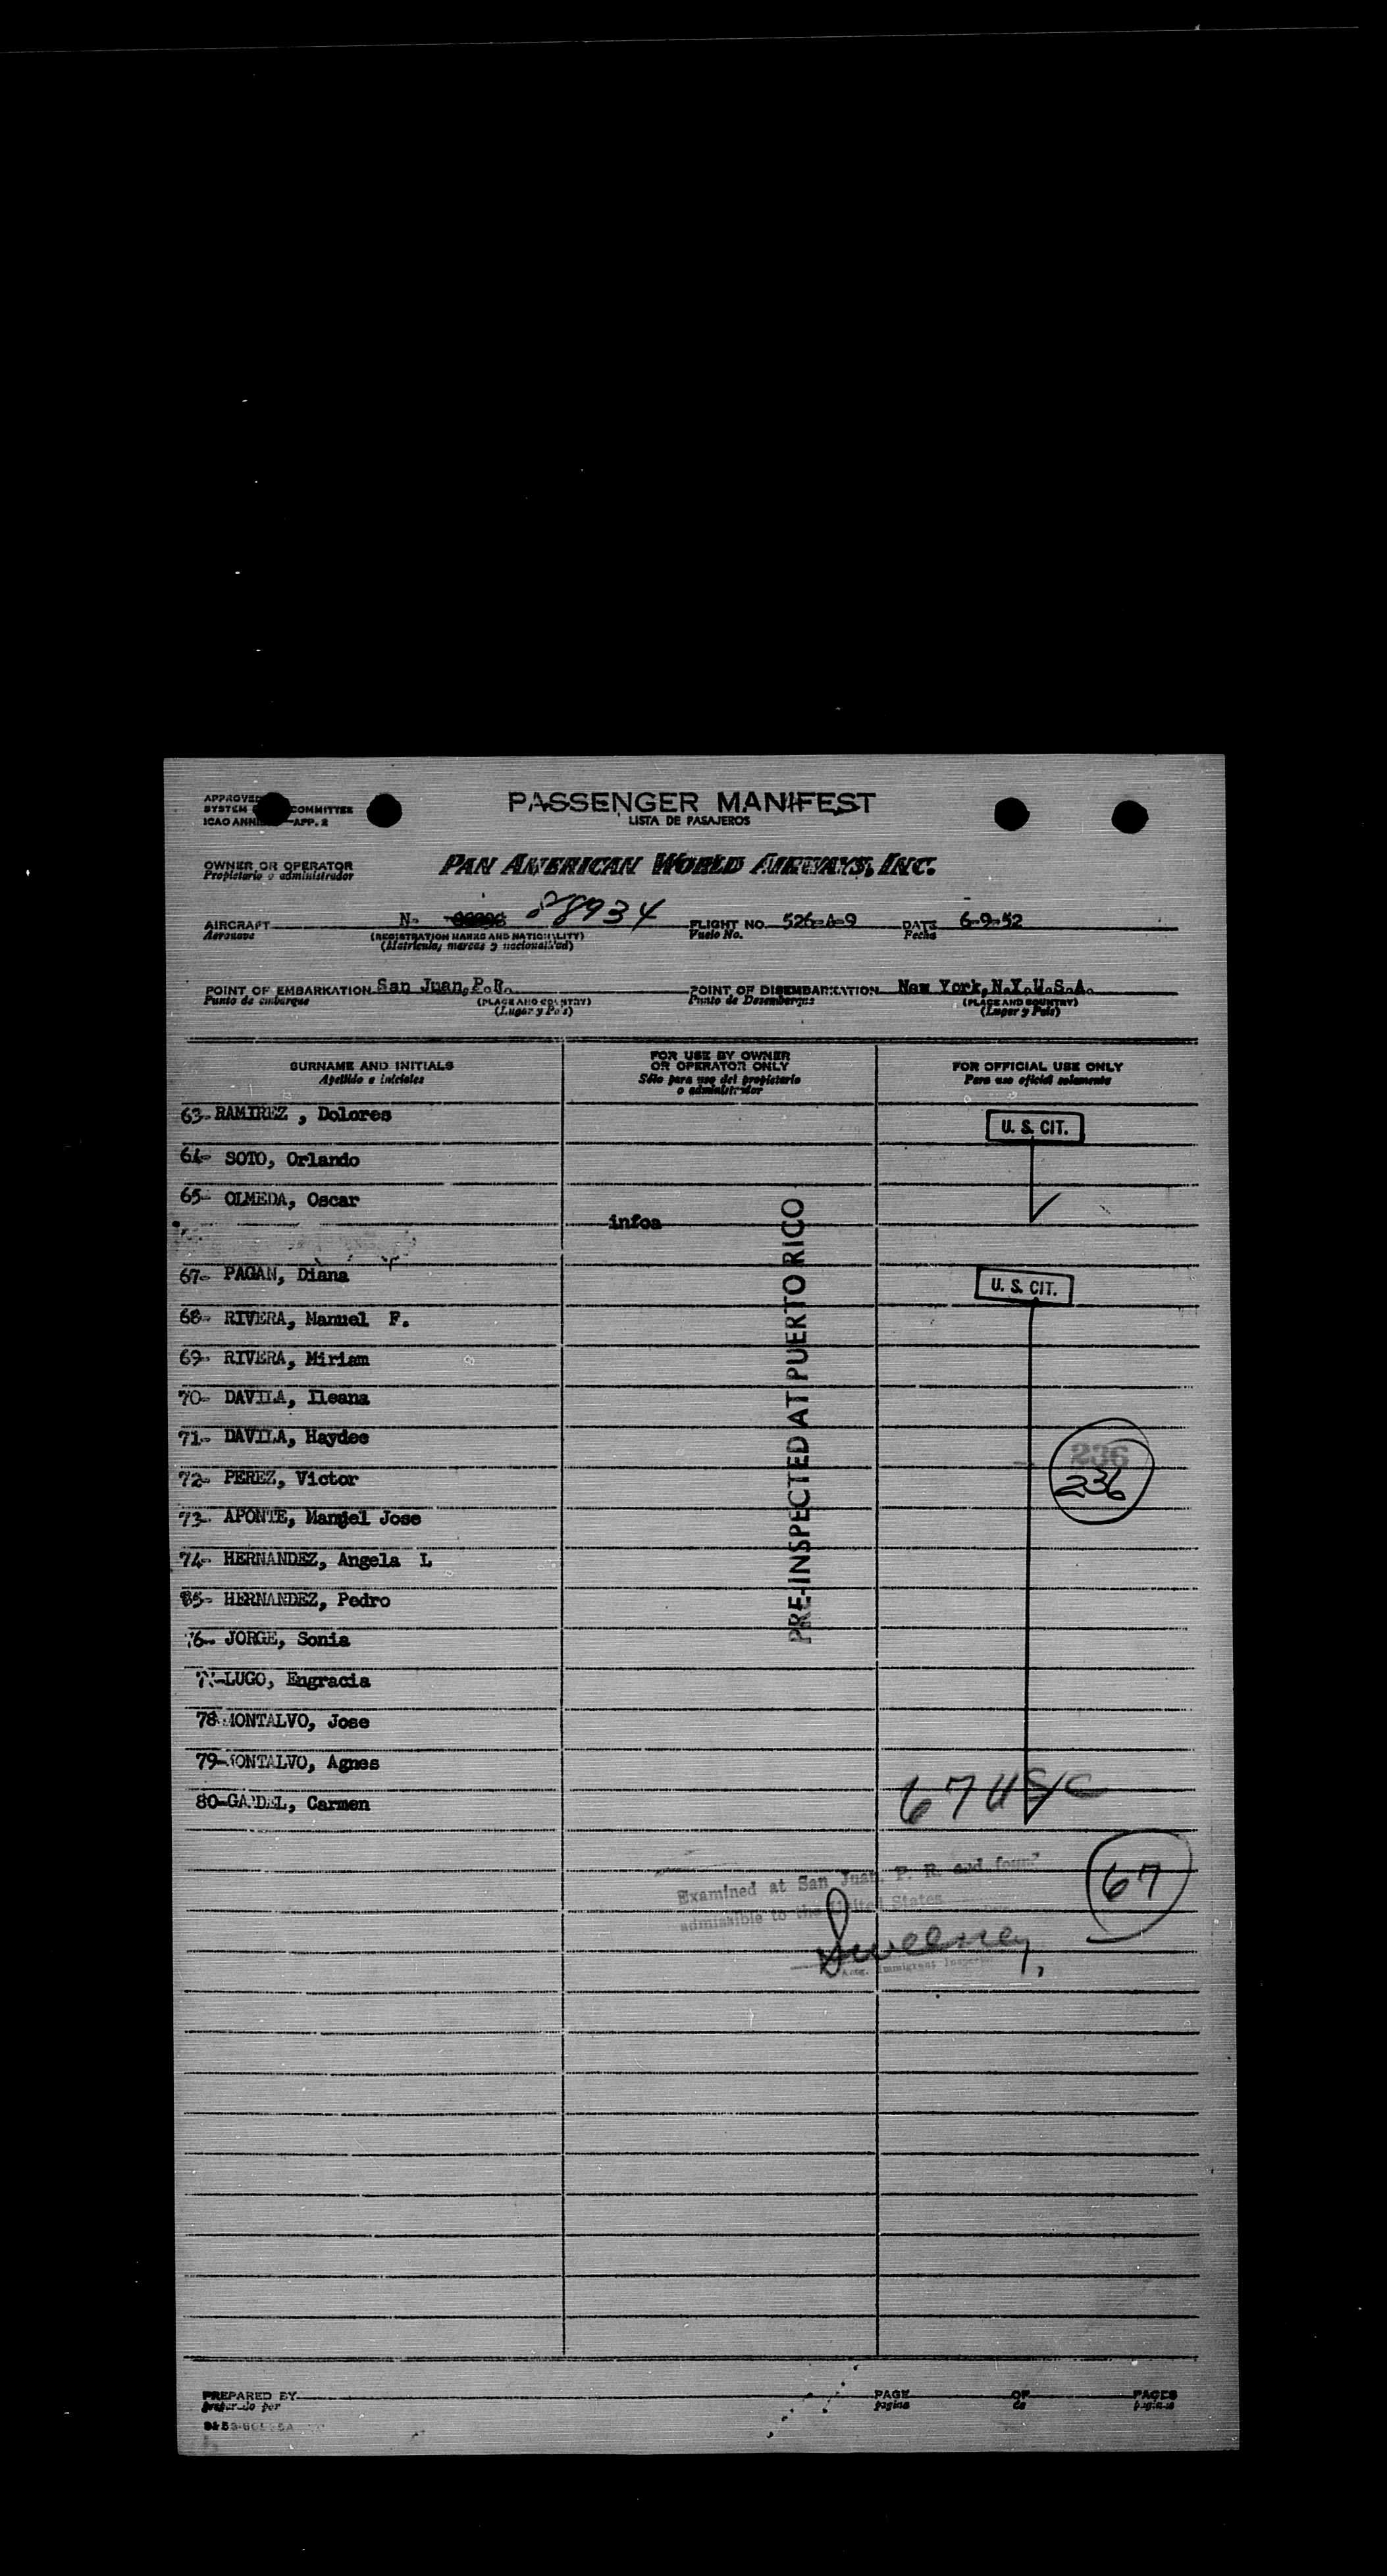 PASSENGER MANIFEST
LISTA DE PASAJEROS
APPROVED
SYSTEM COMMITTEE
ICAO ANN APP. 2
OWNER OR OPERATOR
Propietario o administrador
PAN AMERICAN WORLD AIRWAYS, INC.
AIRCRAFT N- 88934 FLIGHT NO. 526-A-9 DATE 6-9-52
Aeronave (REGISTRATION MARKS AND NATIONALITY) Vuelo No. Fecha
(Matricula, marcas y nacionalidad)
POINT OF EMBARKATION San Juan, P.R. POINT OF DISEMBARKATION New York, N.Y. U.S.A.
Punto de embarque (PLACE AND COUNTRY) Punto de Desembarque (PLACE AND COUNTRY)
(Lugar y País) (Lugar y País)
SURNAME AND INITIALS FOR USE BY OWNER OR OPERATOR ONLY FOR OFFICIAL USE ONLY
Apellido e iniciales Sólo para uso del propietario o administrador Para uso oficial solamente
63- RAMIREZ , Dolores
U. S. CIT.
64- SOTO, Orlando
65- OLMEDA, Oscar
infoa
67- PAGAN, Diana
U. S. CIT.
68- RIVERA, Manuel F.
69- RIVERA, Miriam
70- DAVILA, Ileana
71- DAVILA, Haydee
236
72- PEREZ, Victor
236
73- APONTE, Manuel Jose
74- HERNANDEZ, Angela L
85- HERNANDEZ, Pedro
76- JORGE, Sonia
PRE-INSPECTED AT PUERTO RICO
LUGO, Engracia
78 MONTALVO, Jose
79- MONTALVO, Agnes
80- Carmen
67 USC
67
Examined at San Juan, P. R. and found
admissible to the United States
Sweeney
Actg. Immigrant Inspector
PREPARED BY PAGE OF PAGES
preparado por pagina de paginas